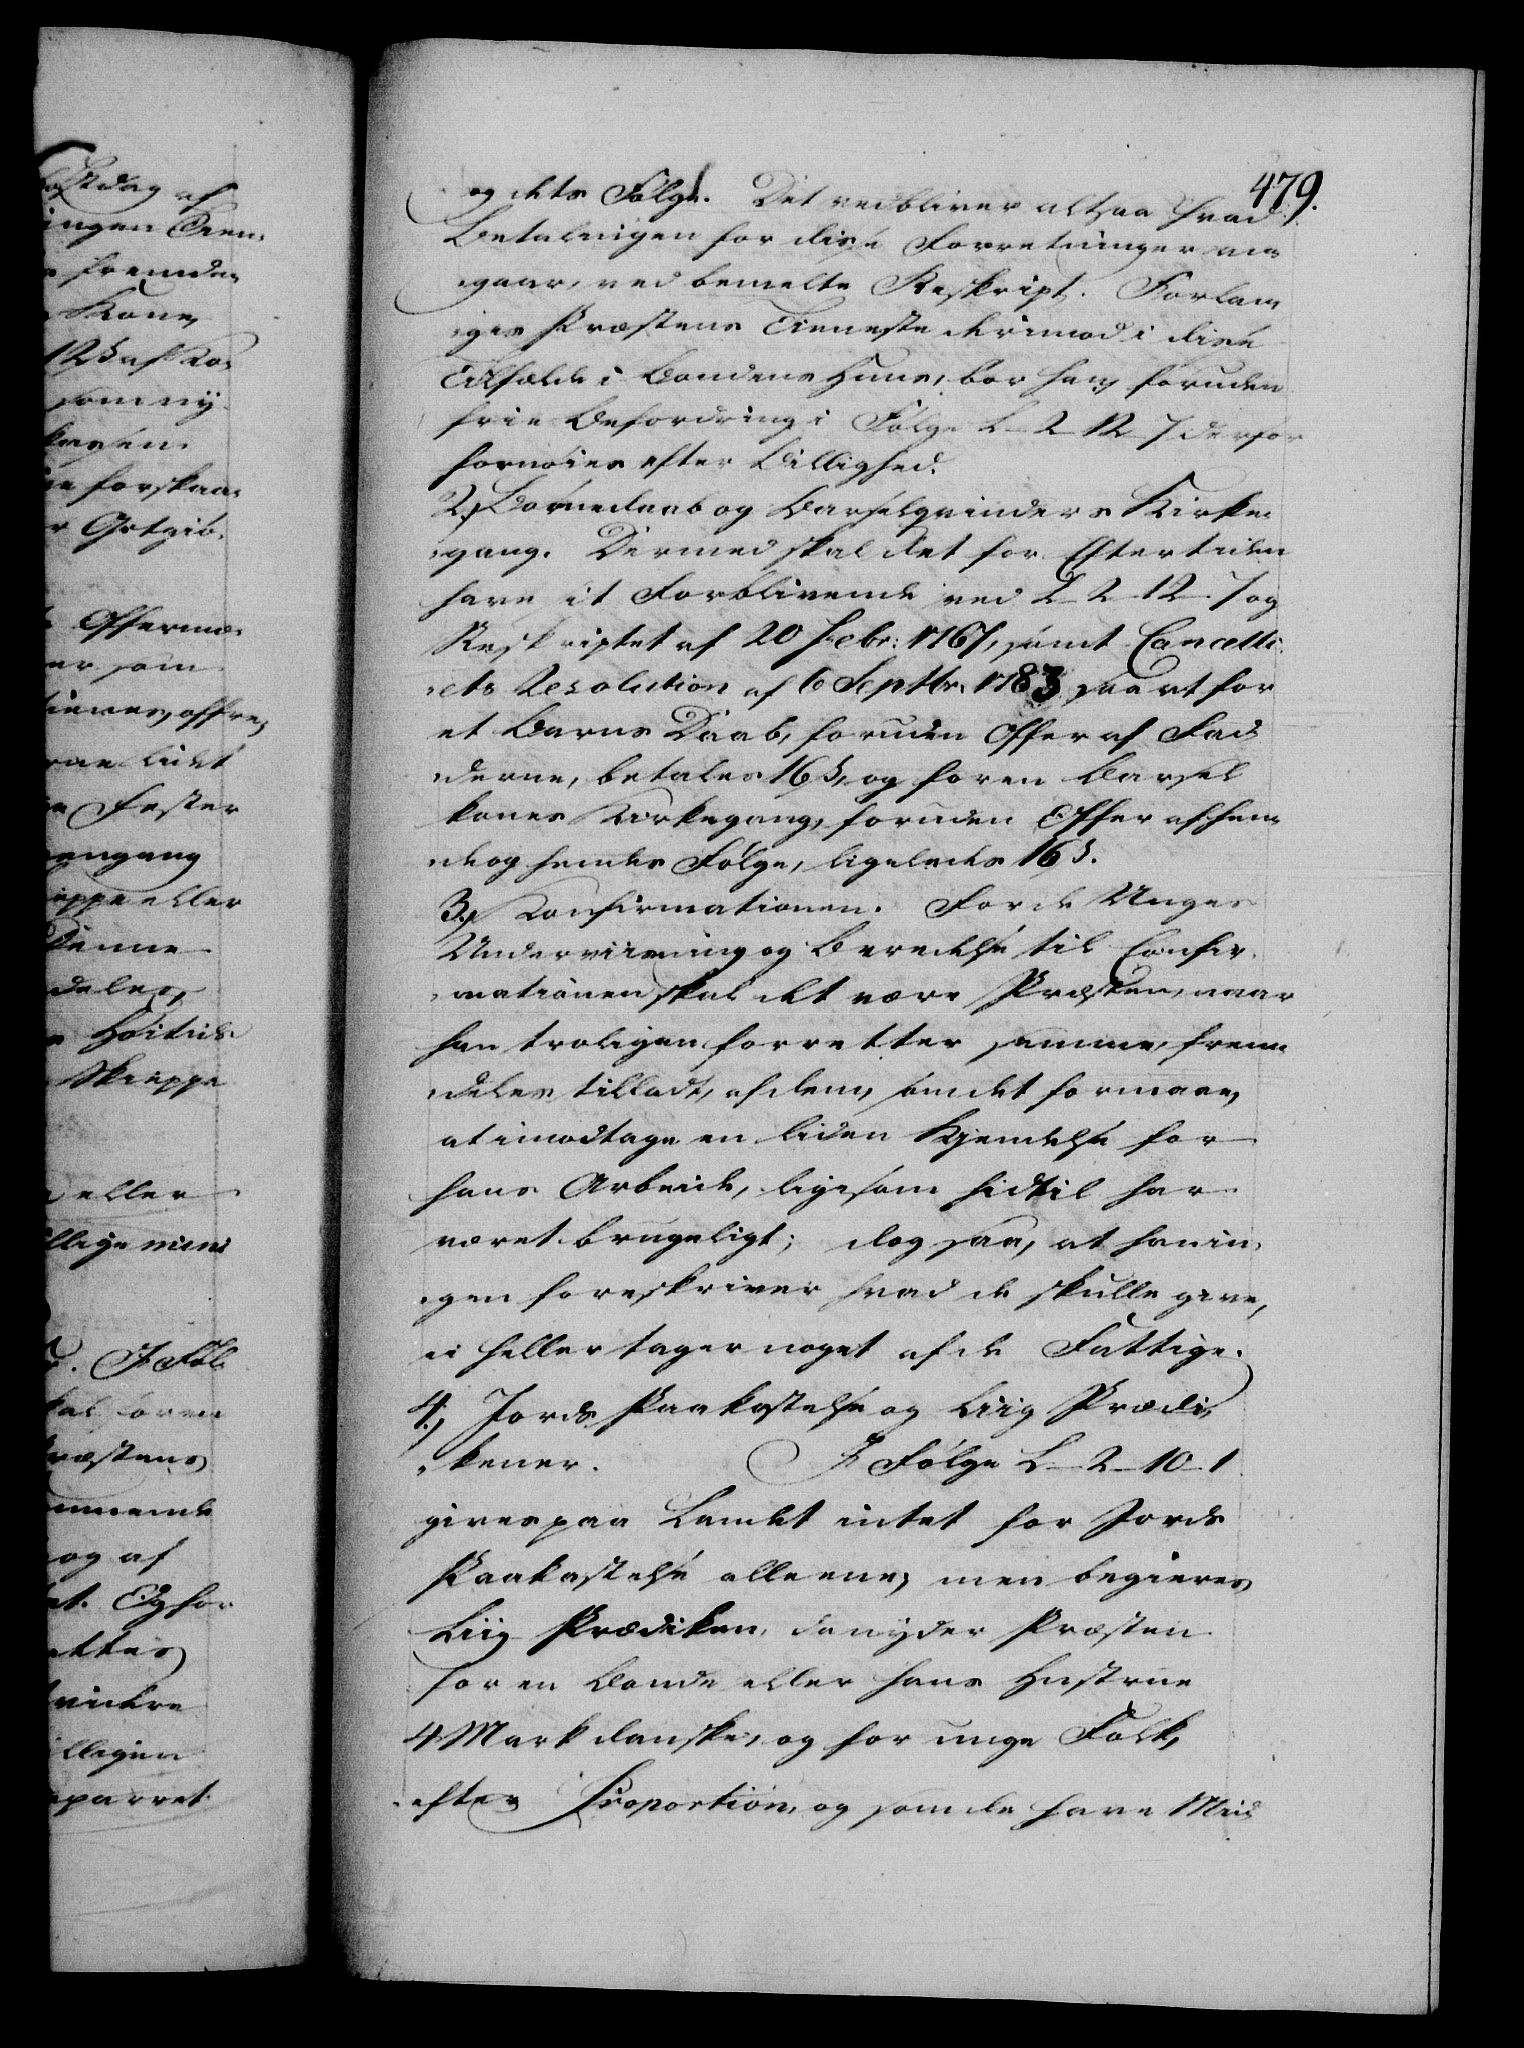 479.
og dets Følge. Det vedbliver altsaa hvad
Betalingen for disse Forretninger an
gaar, ved bemelte Reskript. Forlan
ges Præstens Tieneste derimod i disse
Tilfælde i Bondens Huus, bør han foruden
frie Befordring i Følge L 2 12 7 derfor
fornøies efter Billighed.
2, Børnedaab og Barselqvinders Kirke
gang. Dermed skal det for Eftertiden
have it Forblivende ved L 2 12 7 og
Reskriptet af 20 Febr: 1767, samt Cancelli
ets Resolution af 6 Septbr 1783 saa at for
et Barns Daab, foruden Offer af Fad
derne, betales 16 s, og for en Barsel
kones Kirkegang, foruden Offer af hen
de og hendes Følge, ligeledes 16 s.
3, Konfirmationen. For de Unges
Underviisning og Beredelse til Confir
mationen skal det være Præsten, naar
han troligen forretter samme, frem
deles tilladt, af dem, som det formaae,
at imodtage en liden Kjendelse for
hans Arbeide, ligesom hidtil har
været brugeligt; dog saa, at han in
gen foreskriver hvad de skulle give,
ei heller tager noget af de Fattige.
4, Jords Paakastelse og Liig Prædi
kener. I Følge L 2 10 1
gives paa Landet intet for Jords
Paakastelse alleene, men begieres
Liig Prædiken, da nyder Præsten
for en Bonde eller hans Hustrue
4 Mark danske, og for unge Folk,
efter Proportion, og som de have Mid